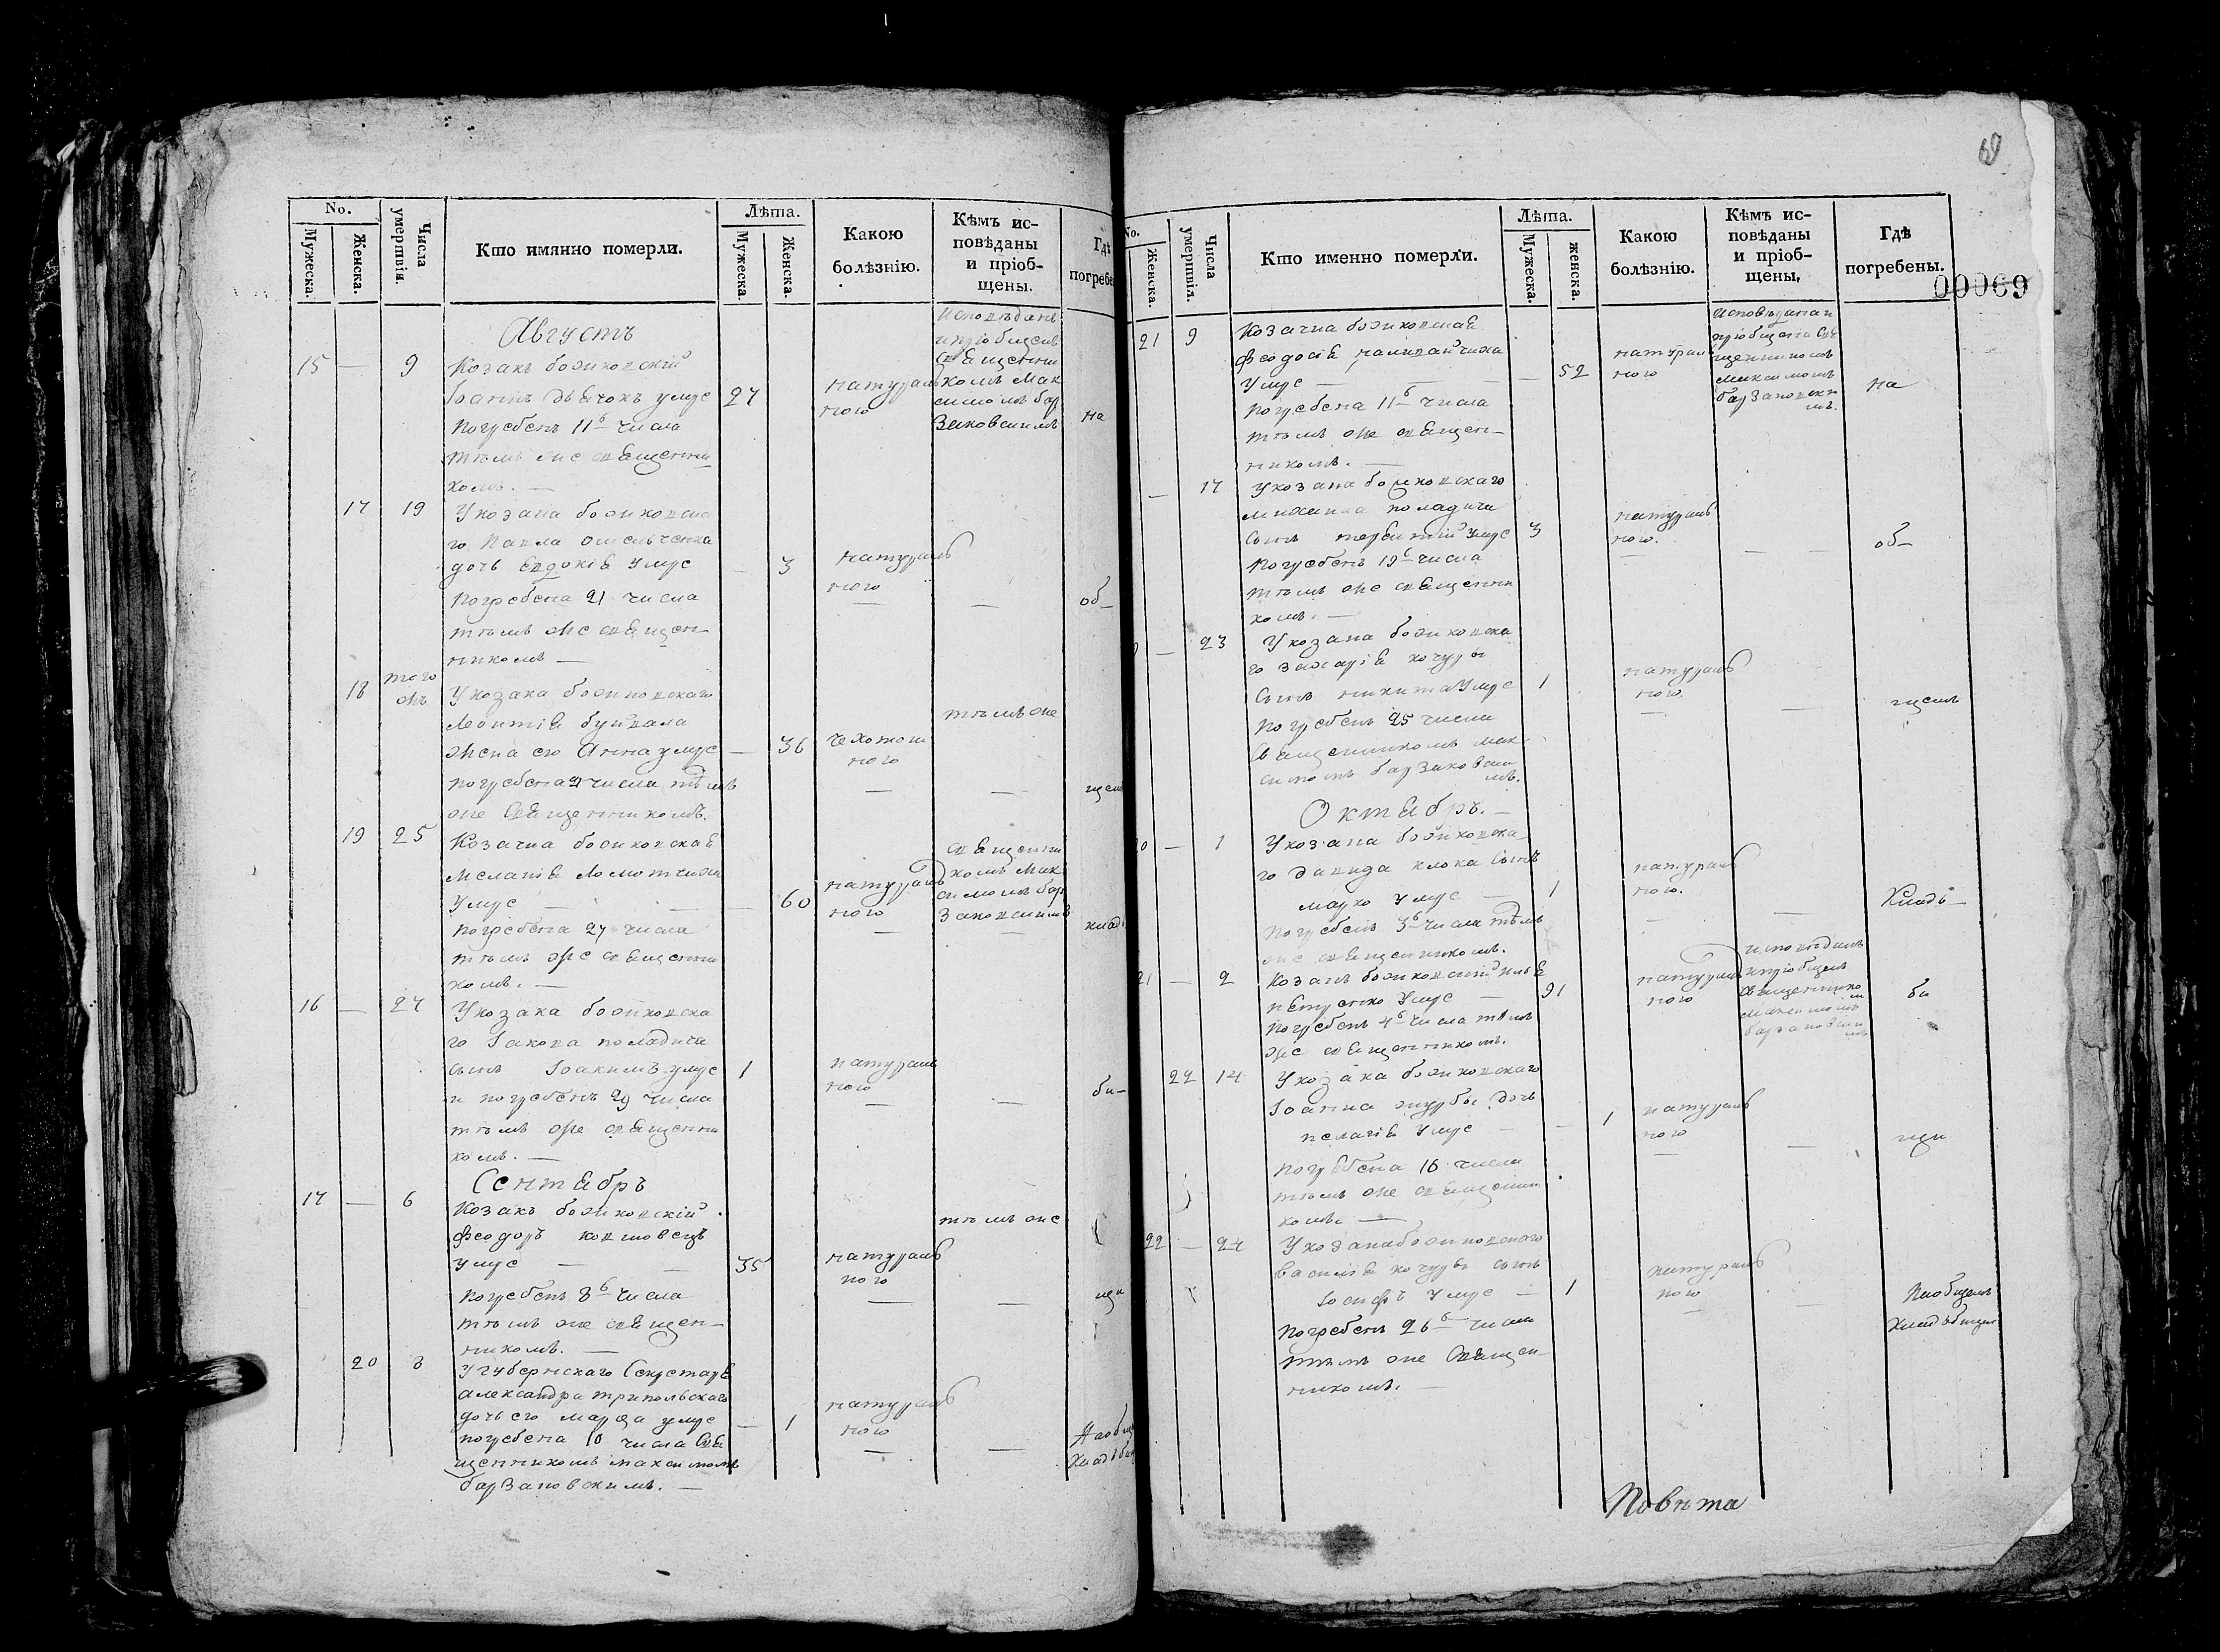 No.
Мужеска.
Женска.
Числа умертвія.
Кто имянно померли.
Лѣта.
Мужеска.
Женска.
Какою болѣзнію.
Кѣмъ ис-
повѣданы
и пріоб-
щены.
Гдѣ
погребе
Августъ
15 — 9 Козакъ бойковскій
Іоаннъ Дьячокъ умре 27
погребенъ 11 числа
тѣмъ же священни
комъ. —
натураль
ного
исповѣданъ
и пріобщенъ
священни
комъ Мак
симомъ бар
заковскимъ
на
17 19 У козака бойковска
го Павла
дочь Евдокія умре — 3
погребена 21 числа
тѣмъ же священ—
никомъ —
натураль
ного
об—
18 того
жъ У козака бойковскаго
Леонтія
жена его Анна умре — 36
погребена 21 числа тѣмъ
же священникомъ.
чахотош
ного
тѣмъ же
щем
19 25 Козачка бойковская
Меланія
умре — — 60
погребена 27 числа
тѣмъ же священни
комъ. —
натураль
ного
священни
комъ Мак
симомъ бар
заковскимъ
клад
16 — 27 У козака бойковска
го Іакова коладича
сынъ Іоакимъ умре 1
и погребенъ 29 числа
тѣмъ же священни
комъ. —
натураль
ного
би—
Сентябръ
17 — 6 Козакъ бойковскій
Феодоръ ковшовецъ
умре — — 35
погребенъ 8 числа
тѣмъ же священ—
никомъ. —
натураль
ного
тѣмъ же
щи
20 8 У губернскаго Секретаря
александра трипольскаго
дочь его марфа умре — 1
погребена 10 числа свя
щенникомъ максимомъ
барзаковскимъ. —
натураль
ного
На общ
кладби
69
00069
No.
Женска.
Числа умертвія.
Кто именно померли.
Лѣта.
Мужеска.
женска.
Какою болѣзнію.
Кѣмъ ис-
повѣданы
и пріоб-
щены,
Гдѣ
погребены.
21 9 Козачка бойковская
Феодосія
умре — — 52
погребена 11 числа
тѣмъ же священ—
никомъ. —
натураль
ного
исповѣдана и
пріобщена свя
щенникомъ
максимомъ
барзаковски
мъ.
на
— 17 У козака бойковскаго
михаила коладича
сынъ терентій умре 3
погребенъ 19 числа
тѣмъ же священни
комъ. —
натураль
ного.
об—
— 23 У козака бойковска
го захарія кочуры
сынъ никита умре 1
погребенъ 25 числа
священникомъ мак
симомъ барзаковски
мъ.
натураль
ного.
щемъ
Октябръ. —
— 1 У козака бойковска
го давида клока сынъ
марко умре — 1
погребенъ 3 числа тѣмъ
же священникомъ.
натураль
ного.
кладъ—
21 — 2 Козакъ бойковскій илья
петренко умре — 91
погребенъ 4 числа тѣмъ
же священникомъ.
натураль
ного
исповѣданъ
и пріобщенъ
священнико
м
максимомъ
барзаковски
мъ
би
22 14 У козака бойковскаго
Іоанна журбы дочь
пелагія умре — — 1
погребена 16 числа
тѣмъ же священни
комъ. —
натураль
ного
щи
22 — 24 У козака бойковскаго
василія кочуры сынъ
Іосифъ умре — 1
погребенъ 26 числа
тѣмъ же священ—
никомъ. —
натураль
ного
На общемъ
кладбищи
Повѣта